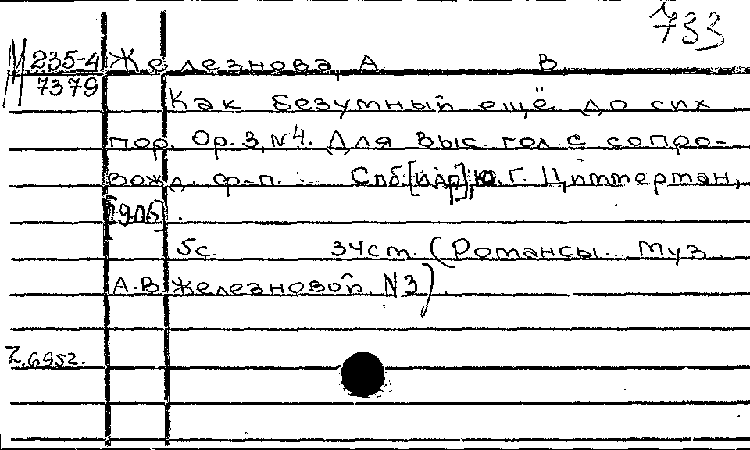 733
М 235-4 Железнова, А. В.
7379
Как безумный ещё до сих
пор. Ор. 3, №4. Для выс. гол. с сопро-
вожд. ф-п. Спб. [и др.], Ю. Г. Циммерман,
5 с. 34 см. (Романсы. Муз.
А. В. Железновой. №3).